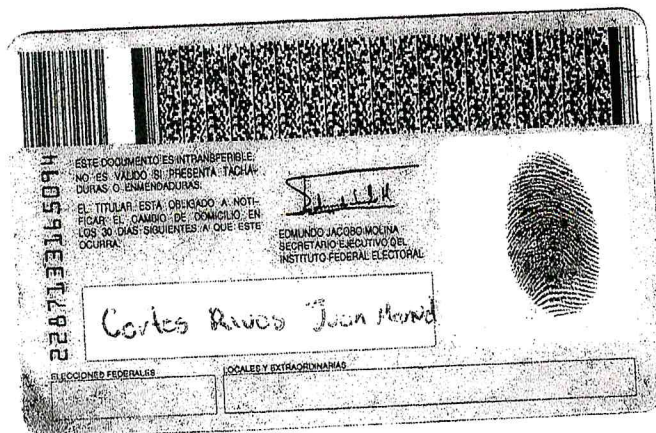 2287133165094
ESTE DOCUMENTO ES INTRANSFERIBLE.
NO ES VALIDO SI PRESENTA TACHA-
DURAS O ENMENDADURAS.
EL TITULAR ESTÁ OBLIGADO A NOTI-
FICAR EL CAMBIO DE DOMICILIO EN
LOS 30 DIAS SIGUIENTES A QUE ESTE
OCURRA.
EDMUNDO JACOBO MOLINA
SECRETARIO EJECUTIVO DEL
INSTITUTO FEDERAL ELECTORAL
Cortes Rivos Juan Manuel
ELECCIONES FEDERALES
LOCALES Y EXTRAORDINARIAS